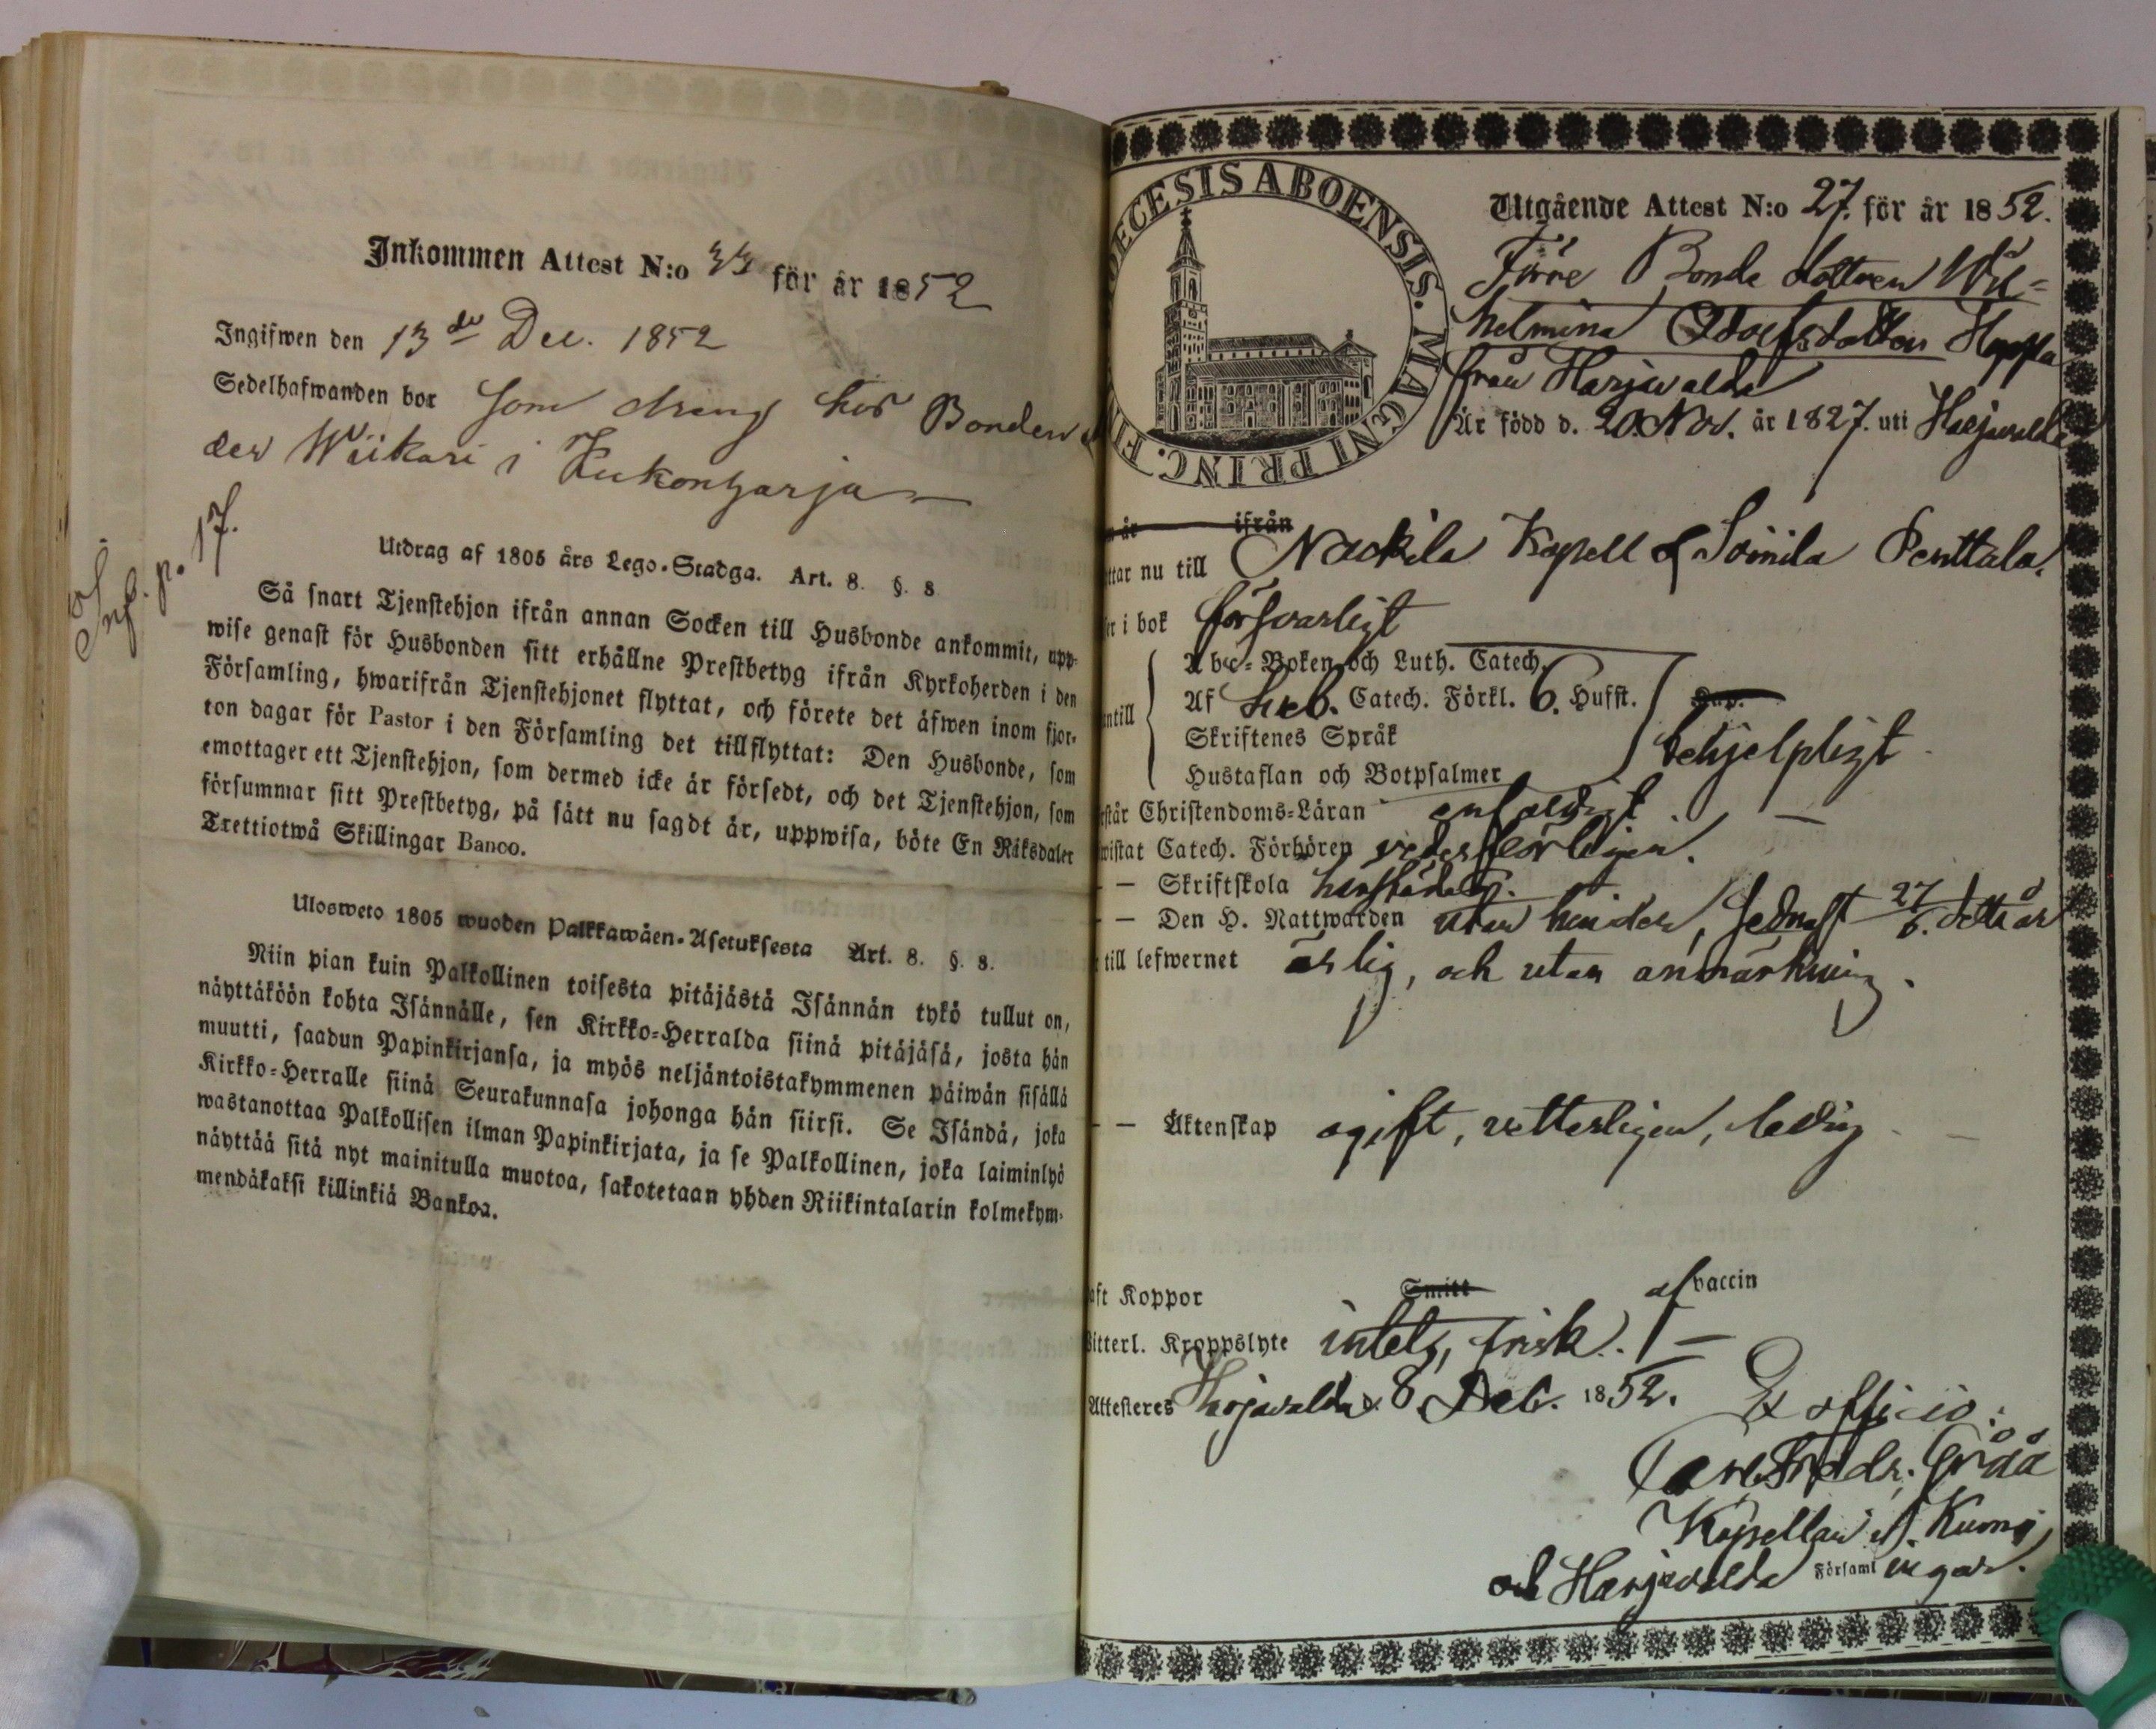 Inkommen Attest N:o 33 för år 1852
Ingifwen den 13de Dec. 1852
Sedelhafwanden bor som dreng hos Bonden
der Wiikari i Kukonharja
Inf. p. 17.
Utdrag af 1805 års Lego-Stadga. Art. 8. §. 8
Så snart Tjenstehjon ifrån annan Socken till Husbonde ankommit, upp-
wise genast för Husbonden sitt erhållne Prestbetyg ifrån Kyrkoherden i den
Församling, hwarifrån Tjenstehjonet flyttat, och förete det äfwen inom fjor-
ton dagar för Pastor i den Församling det tillflyttat: Den Husbonde, som
emottager ett Tjenstehjon, som dermed icke är försedt, och det Tjenstehjon, som
försummar sitt Prestbetyg, på sätt nu sagdt är, uppwisa, böte En Riksdaler
Trettiotwå Skillingar Banco.
Ulosweto 1805 wuoden Palkkawäen-Asetuksesta Art. 8. §. 8.
Niin pian kuin Palkollinen toisesta pitäjästä Isännän tykö tullut on,
näyttäköön kohta Isännälle, sen Kirkko-Herralda siinä pitäjäsä, josta hän
muutti, saadun Papinkirjansa, ja myös neljäntoistakymmenen päiwän sisällä
Kirkko-Herralle siinä Seurakunnasa johonga hän siirsi. Se Isändä, joka
wastanottaa Palkollisen ilman Papinkirjata, ja se Palkollinen, joka laiminlyö
näyttää sitä nyt mainitulla muotoa, sakotetaan yhden Riikintalarin kolmekym-
mendäkaksi killinkiä Bankoa.
DECESIS ABOENSIS. MAGNI PRINC. FI
Utgående Attest N:o 27. för år 1852.
Förre Bonde dottren Wil=
helmina Adolfsdotter Hoppla
från Harjavalda
Är född d. 20. Nov. år 1827. uti Harjavalda
år ifrån
ttar nu till Nackila Kapell & Soinila Penttala.
er i bok försvarligt
Abc-Boken och Luth. Catech.
Af Sveb. Catech. Förkl. 6. Hufst.
ntill Skriftenes Språk behjelpligt
Hustaflan och Botpsalmer
rstår Christendoms-Läran enfaldigt.
wistat Catech. Förhören vederbörligen.
— Skriftskola
— Den H. Nattwarden utan hinder, sednast 27/6. detta år
till lefwernet ärlig, och utan anmärkning.
— Äktenskap ogift, vitterligen, ledig
aft Koppor Smitt af vaccin
Witterl. Kroppslyte intet, frisk.
Attesteres Harjavalda d. 8. Dec. 1852. Ex officio:
Carl Fredr. Gråå
Kapellan i N. Kumo
och Harjavalda Församl ingar.